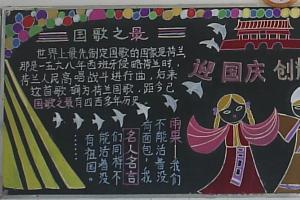 国歌之最
世界上最先制定国歌的国家是荷兰
那是一五六八年西班牙侵略荷兰时,
荷兰人民高唱战斗进行曲,后来
这首歌 确为荷兰国歌,距今已
国歌之最有四百多年历史.
迎国庆 创
雨果:我们
不能活着没
有面包,我
名人名言
们同样不
能活着没
有祖国。